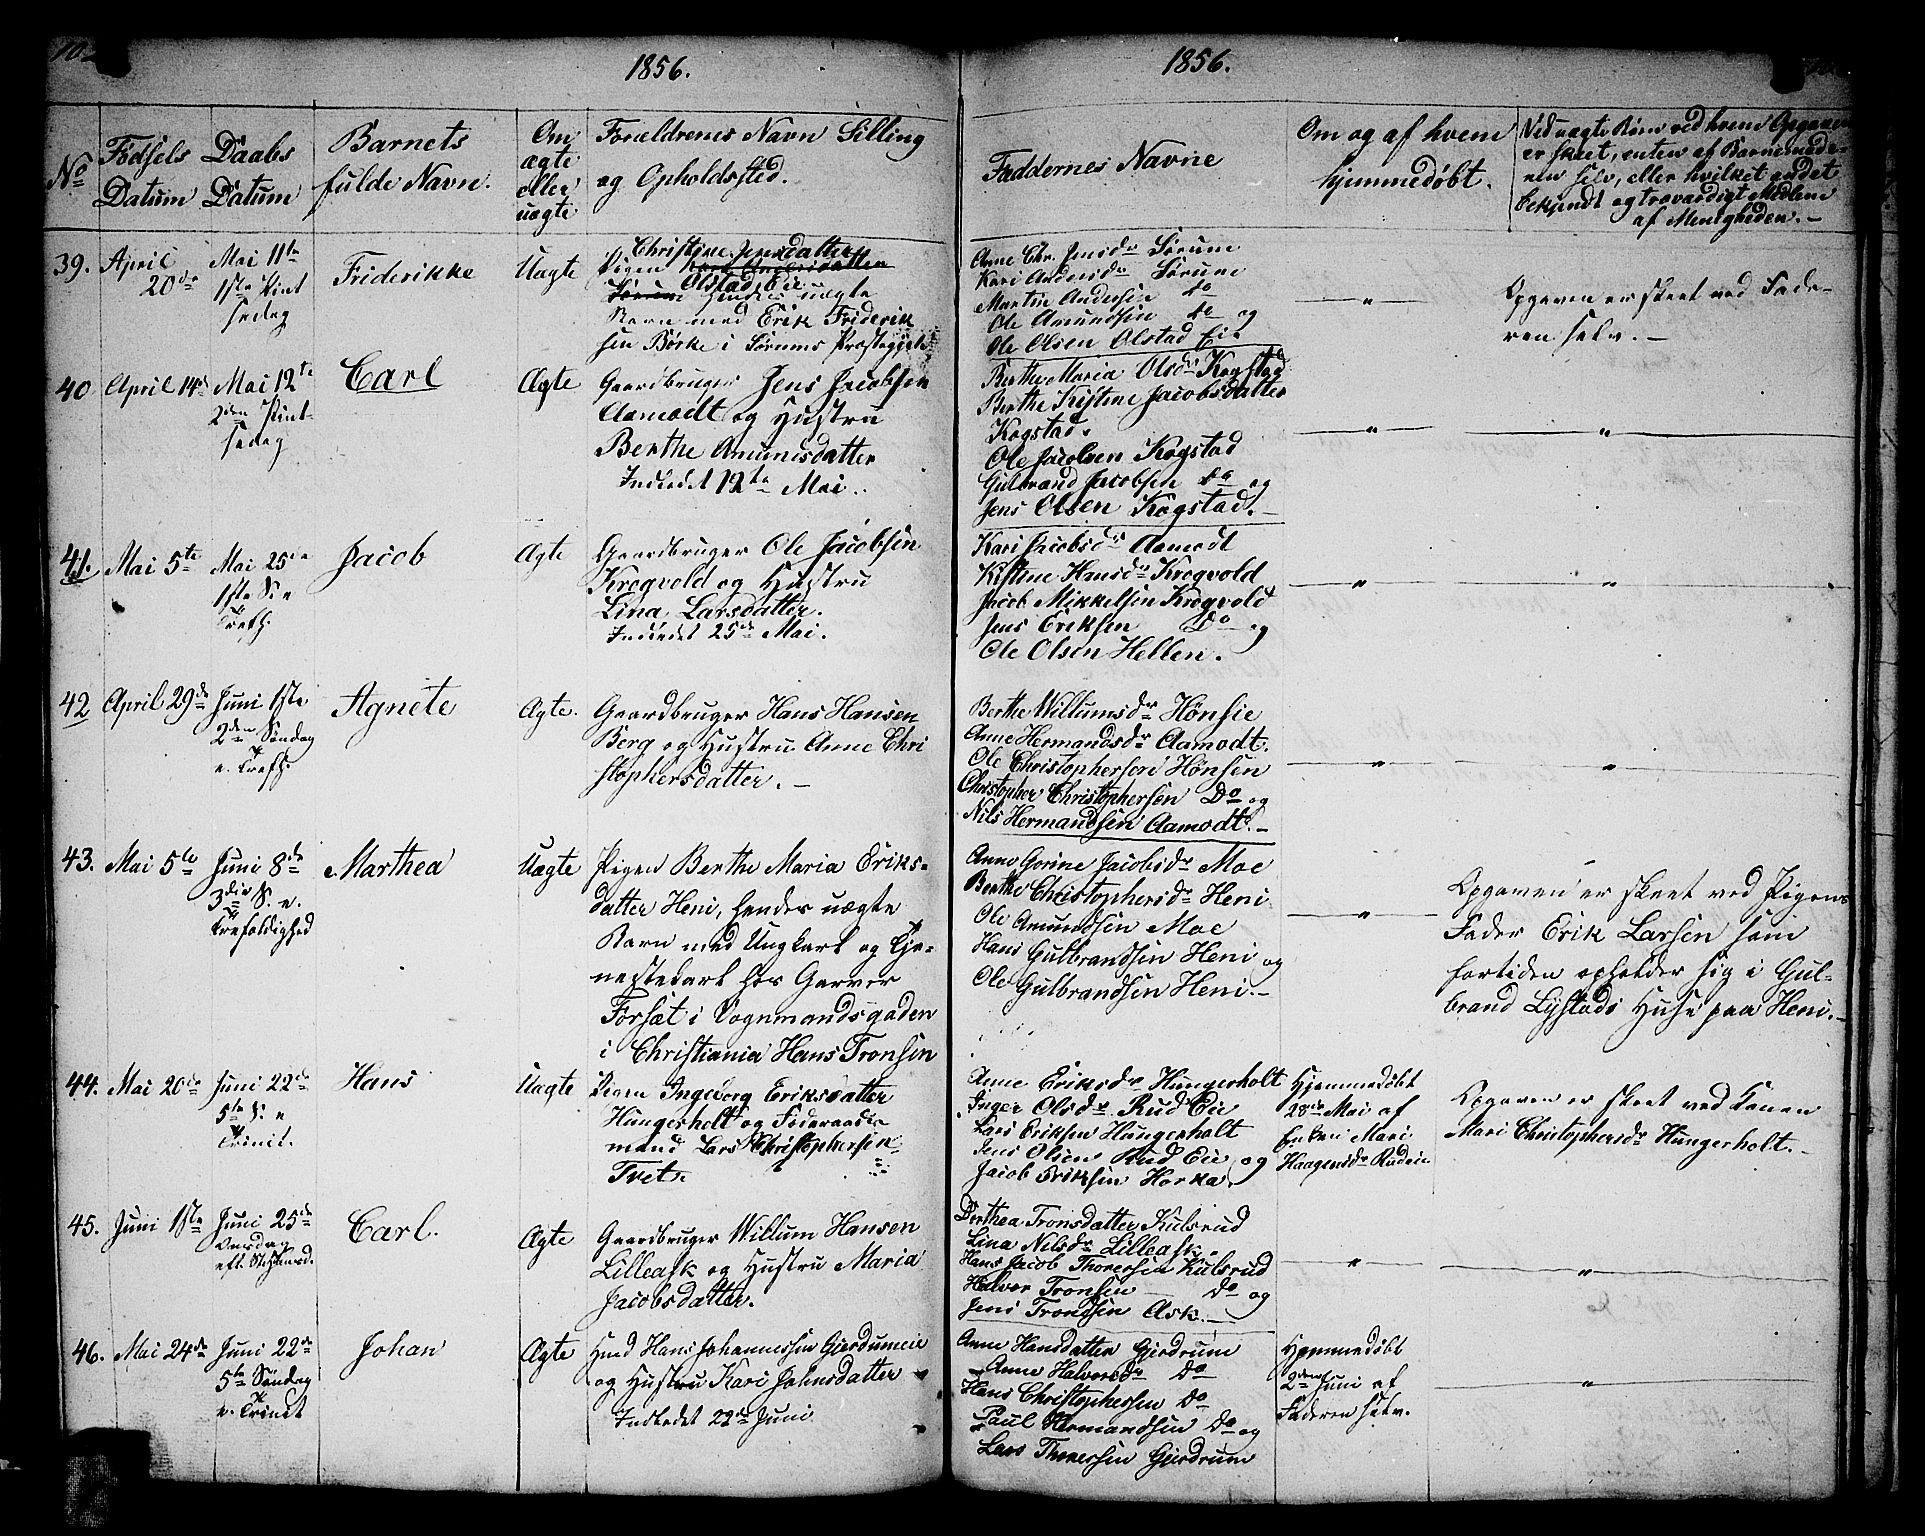 102
1856.
No
Fødsels
Datum
Daabs
Datum
Barnets
fulde Navn.
Om
ægte
eller
uægte
Forældrenes Navn Stilling
og Opholdssted.
39.
April
20de
Mai 11te
1ste Pint
sedag
Friderikke
Uægte
Christine Jensdatter
Pigen
Olstad Eie
hendes uægte
Barn med Erik Friderik
sen Børke i Sørums Præstegjeld
40
April 14de
Mai 12te
2den Pint-
sedag
Carl
Ægte
Gaardbruger Jens Jacobsen
Aamodt og Hustru
Berthe Amunsdatter
Indledet 12te Mai.
41.
Mai 5te
Mai 25de
1ste S. e
Trefh.
Jacob
Ægte
Gaardbruger Ole Jacobsen
Krogvold og Hustru
Lina Larsdatter.
Indledet 25de Mai.
42
April 29de
Juni 1ste
2den Søndag
e. Trefh.
Agnete
Ægte.
Gaardbruger Hans Hansen
Berg og Hustru Anne Chri
stophersdatter. –
43.
Mai 5te
Juni 8de
3die S. e.
Trefoldighed
Marthea
Uægte
Pigen Berthe Maria Eriks-
datter Heni, hendes uægte
Barn med Ungkarl og Tje-
nestekarl hos Garver
Forsæt i Vognmandsgaden
i Christiania Hans Tronsen
44.
Mai 20de
Juni 22de
5te S. e
Trinit.
Hans
Uægte
Pigen Ingeborg Eriksdatter
Hungerholt og Føderaads
mand Lars Christophersen
Tveter
45.
Juni 1ste
Juni 25de
Onsdag
Carl.
Ægte
Gaardbruger Willum Hansen
Lilleask og Hustru Maria
Jacobsdatter.
46.
Mai 24de
Juni 22de
5te Søndag
e. Trinit
Johan
Ægte
Hmd Hans Johannessen Gjerdrumeie
og Hustru Kari Johnsdatter
Indledet 22de Juni
1856.
Faddernes Navne
Om og af hvem
hjemmedøbt.
Ved uægte Børn ved hvem Opgaven
er skeet, enten af Barnemode-
ren selv, eller hvilket andet
bekjendt og troværdigt Medlem
af Menigheden. –
Anne Chr. Jensdr Sørum
Kari Andersdr Sørum
Martin Andersen do
Ole Amundsen do og
Ole Olsen Olstad Eie
"
Opgaven er skeet ved Fade-
ren selv. –
Berthe Maria Olsdr Kogstad
Berthe Kistine Jacobsdatter
Kogstad.
Ole Jacobsen Kogstad
Gulbrand Jacobsen Do og
Jens Olsen Kogstad. –
"
"
Kari Jacobsdr Aamodt
Kistine Hansdr Krogvold
Jacob Mikkelsen Krogvold
Jens Eriksen Do og
Ole Olsen Hellen.
"
"
Berthe Willumsdr Hønsie
Anne Hermandsdr Aamodt.
Ole Christophersen Hønsen
Christopher Christophersen Do og
Nils Hermandsen Aamodt. –
"
"
Anne Gorine Jacobsdr Moe
Berthe Christophersdr Heni
Ole Amundsen Moe
Hans Gulbrandsen Heni og
Ole Gulbrandsen Heni. –
"
Opgaven er skeet ved Pigens
Fader Erik Larsen som
fortiden opholder sig i Gul-
brand Lystads Huse paa Heni. –
Anne Eriksdr Hungerholt
Inger Olsdr Rud Eie
Lars Eriksen Hungerholt
Jens Olsen Rud Eie og
Jacob Eriksen Horka.
Hjemmedøbt
28de Mai af
Enken Mari
Haagensdr Rudeie
Opgaven er skeet ved Konen
Mari Christophersdr Hungerholt. –
Berthea Tronsdatter Kulsrud
Lina Nilsdr Lilleask.
Hans Jacob Thoresen Kulsrud
Halvor Tronsen Do og
Jens Trondsen Ask. –
"
"
Anne Hansdatter Gjerdrum
Anne Halvorsdr Do
Hans Christophersen Do
Paul Hermandsen Do og
Lars Thoressen Gjerdrum
Hjemmedøbt
2den Juni af
Faderen selv.
"